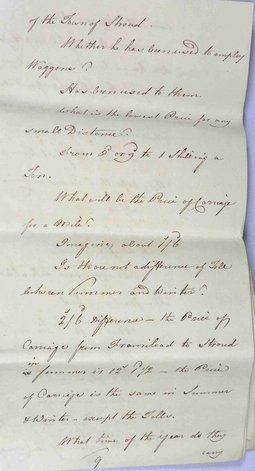 of the Town of Stroud
Whether he has been used to employ
Waggons?
Has been used to them
What is the lowest Price for any
small Distance?
From 8d or 9d to 1 Shilling a
Ton.
What will be the Price of Carriage
for a Mile?
Imagines about 1/6
Is there not a difference of Toll
between Summer and Winter?
2/6 difference - the Price of
Carriage from Framilead to Stroud
in Summer is 12 - the Price
of Carriage is the same in Summer
& Winter - except the Tolls.
What time of the year do they
carry